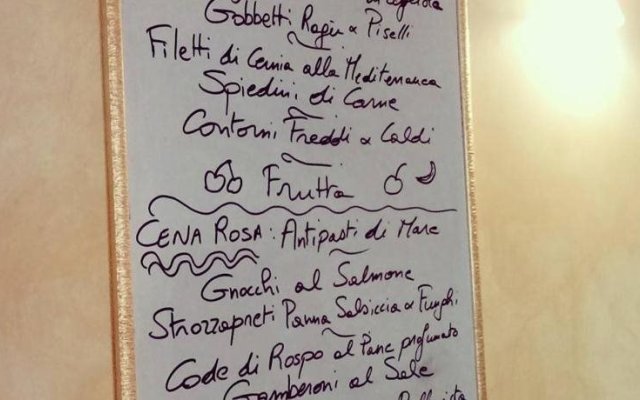 Gobbetti Ragù e Piselli
Filetti di Cernia alla Mediterranea
Spiedini di Carne
Contorni Freddi e Caldi
Frutta
CENA ROSA: Antipasti di Mare
Gnocchi al Salmone
Strozzapreti Panna Salsiccia e Funghi
Code di Rospo al Pane profumato
Gamberoni al Sale